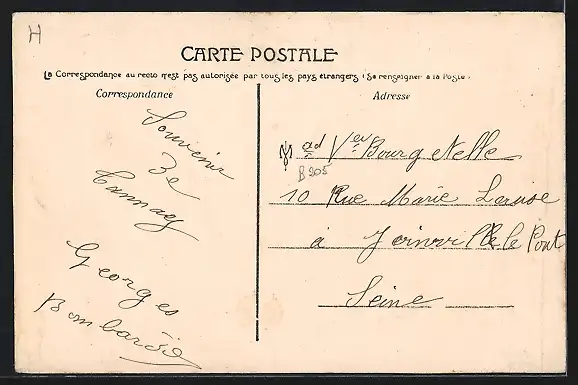 H
CARTE POSTALE
La Correspondance au recto n'est pas autorisée par tous les pays étrangers (Se renseigner à la Poste.)
Correspondance
Adresse
Souvenir
De
Georges
Bombardie
Mad Vve Bourg Nelle
B 205
10 Rue Marie Leruse
a Joinville le Pont
Seine